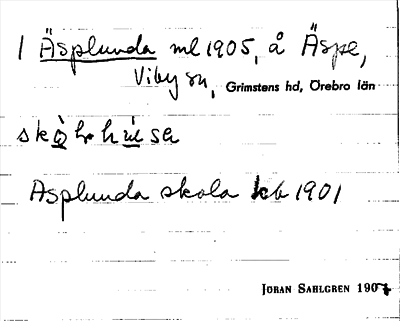 1 Äsplunda ml 1905, å Äspe,
Viby sn, Grimstens hd, Örebro län
Asplunda skola kb 1901
JÖRAN SAHLGREN 1907